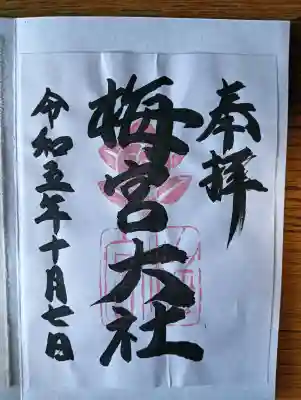 奉拝
梅宮大社
令和五年十月七日